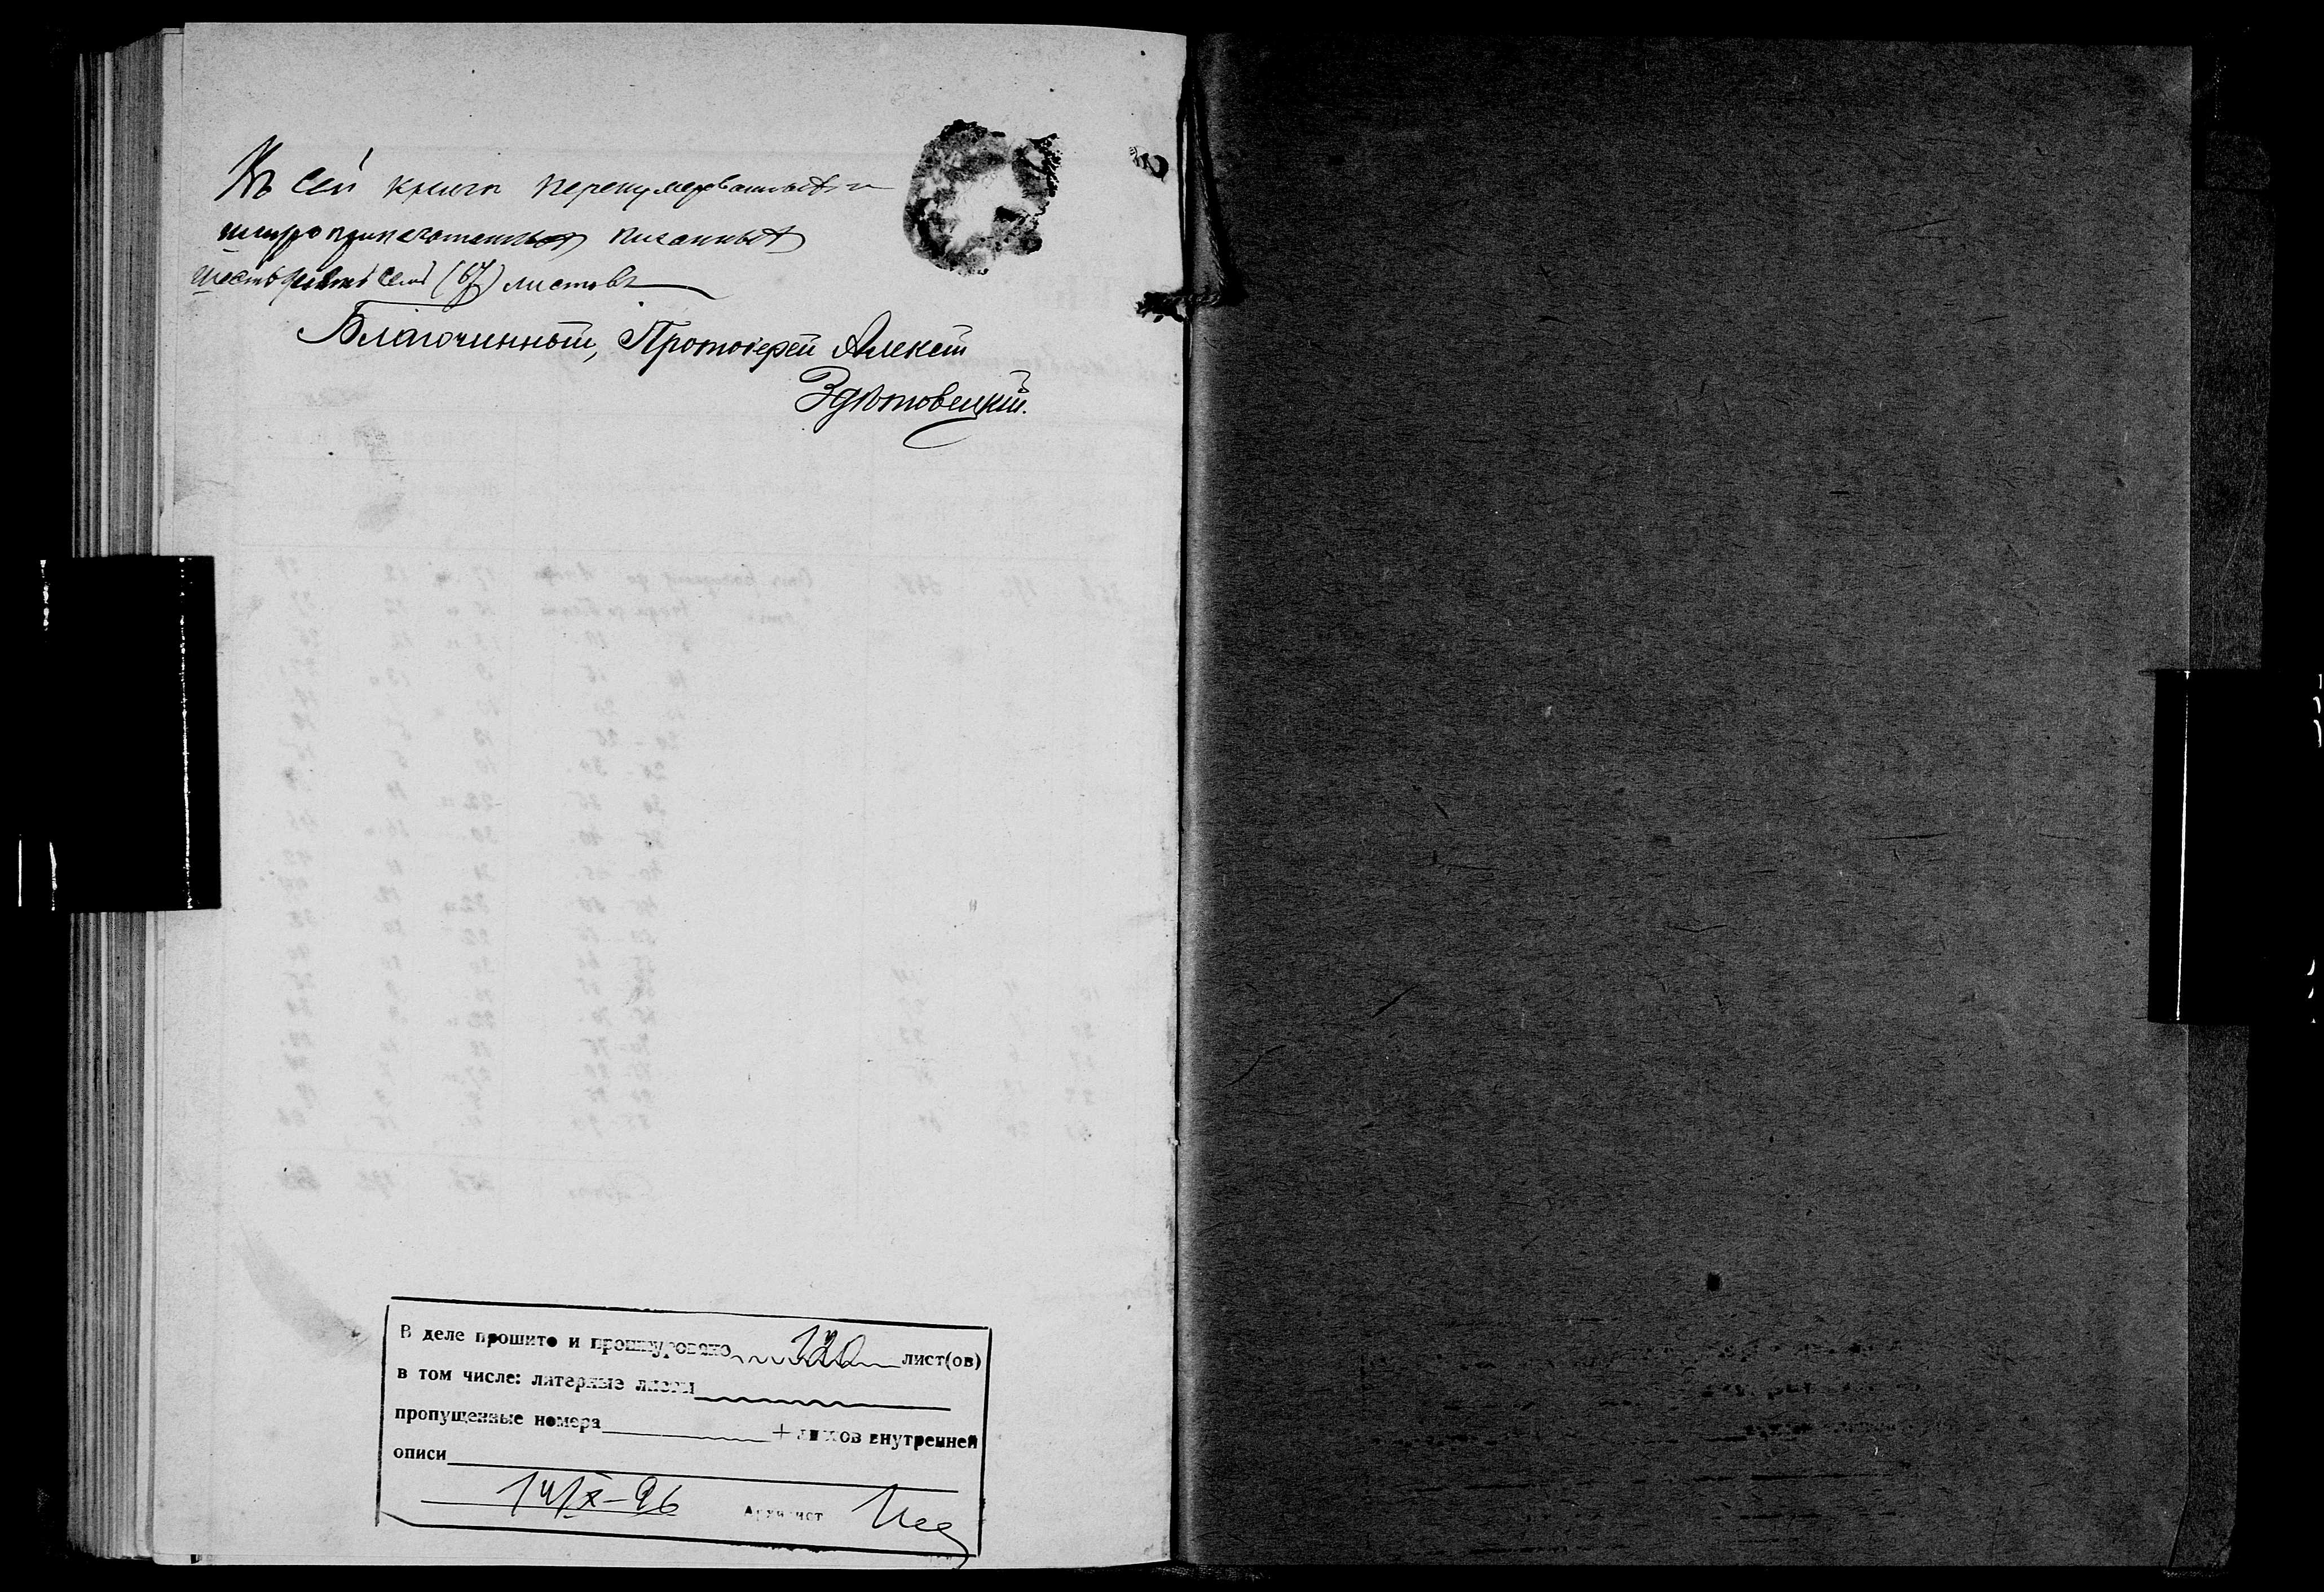 Въ сей книги перенумерованныхъ и
шнуроприпечатанныхъ писанныхъ
шестьдесятъ семь (67) листовъ
Благочинный, Протоіерей Алексій
Здѣтовецкій.
В деле прошито и пронумеровано 120 лист(ов)
в том числе: литерные листы
пропущенные номера + листов внутренней
описи
14/X-96 Архивист